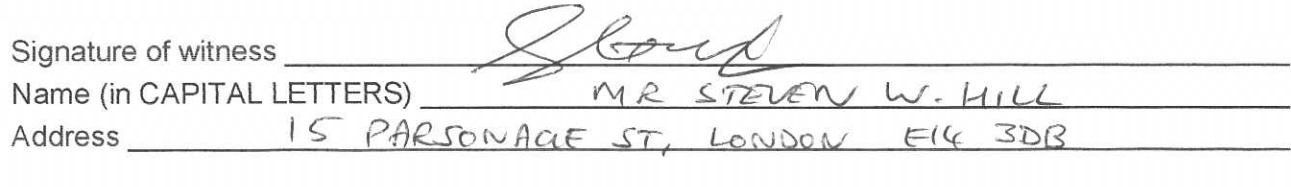 Signature of witness
Name (in CAPITAL LETTERS) MR STEVEN W. HILL
Address 15 PARSONAGE ST, LONDON E14 3DB